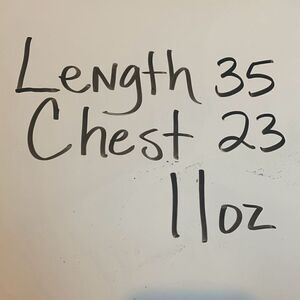 Length 35
Chest 23
11oz